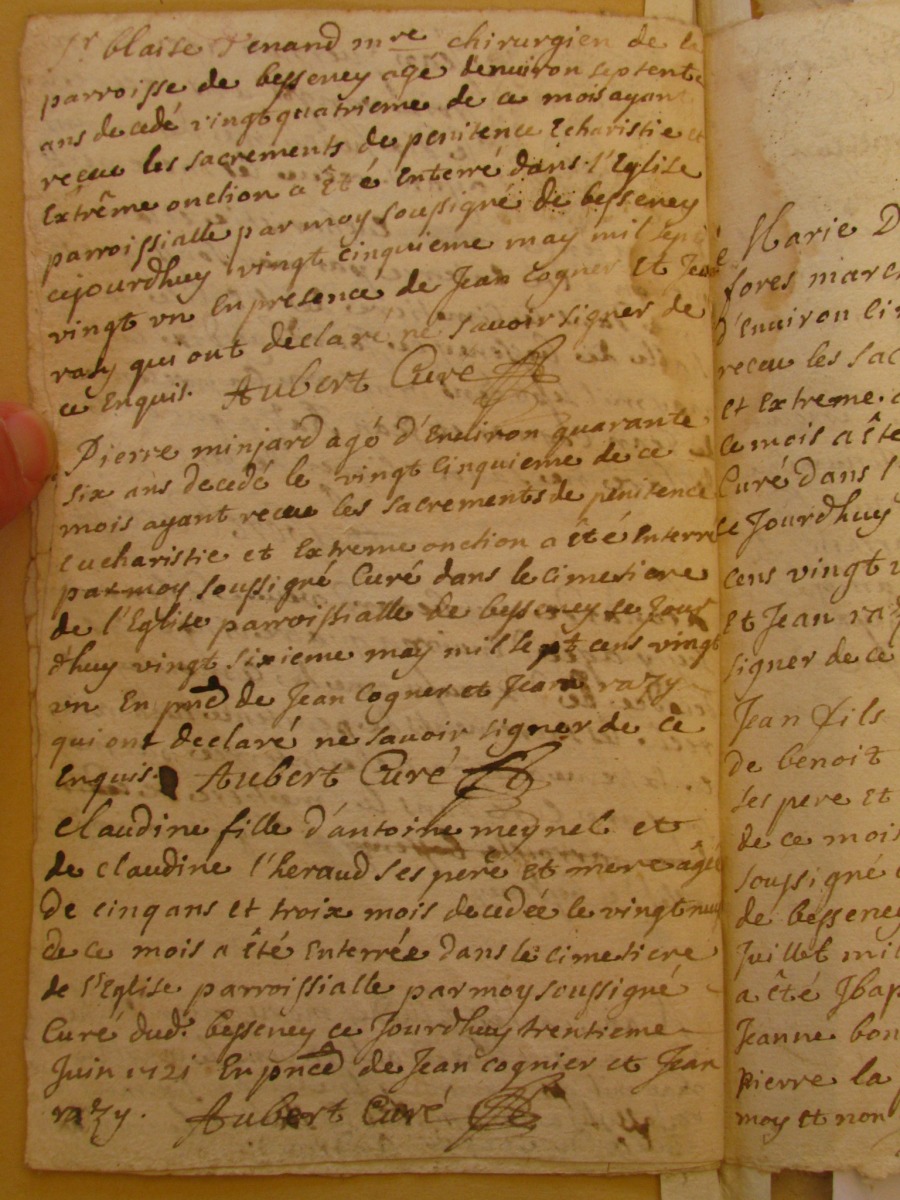 Sr blaise Venand mre chirurgien de la
parroisse de besseney agé denuiron septente
ans decedé vingtquatrieme de ce mois ayant
receu les sacrements de penitence Echaristie et
Extrême onction a êté Enterré dans l'Eglise
parroissialle par moy soussigné de besseney
cejourdhuy vingt cinquieme may mil sept
vingt vn En presence de Jean Cogner et Jean
razy qui ont declaré ne savoir signer de
ce Enquis. Aubert Curé
Pierre minjard agé d'Enuiron quarante
six ans decedé le vingt Cinquieme de ce
mois ayant receu les sacrements de penitence
Eucharistie et Extreme onction a êté Enterré
par moy soussigné Curé dans le cimetiere
de l'Eglise parroissialle de besseney ce Jour
d'huy vingt sixieme may mil sept cens vingt
vn En pnce de Jean Cogner et Jean razy
qui ont declaré ne savoir signer de ce
Enquis. Aubert Curé
Claudine fille d'antoine meynel et
de claudine l'heraud ses pere et mere âgée
de cinq ans et troix mois decedée le vingt neuf
de ce mois a êté Enterrée dans le cimetiere
de l'Eglise parroissialle par moy soussigné
Curé dudt besseney ce Jourdhuy trentieme
Juin 1721 En pnce de Jean cognier et Jean
razy. Aubert Curé
Marie D
fores march
d'Enuiron cin
receu les sac
et Extreme
ce mois a êté
Curé dans l
ce Jourdhuy
cens vingt v
et Jean razy
signer de ce
Jean fils
de benoit
ses pere et
de ce mois
soussigné
de besseney
Juillet mil
a êté Ibap
Jeanne bon
pierre la
moy et non